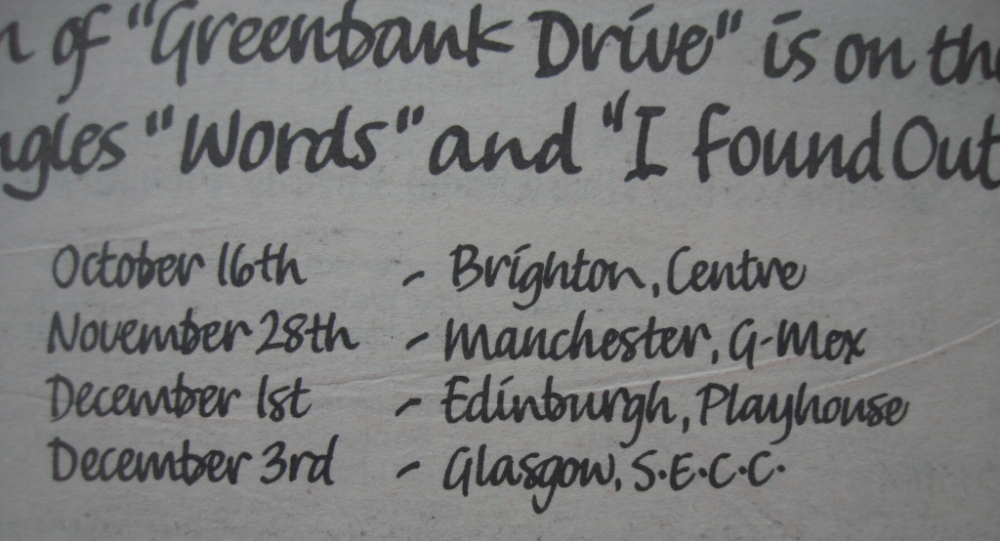 of "Greenbank Drive" is on the
"Words" and "I Found Out
October 16th - Brighton, Centre
November 28th - Manchester, G-Mex
December 1st - Edinburgh, Playhouse
December 3rd - Glasgow, S.E.C.C.